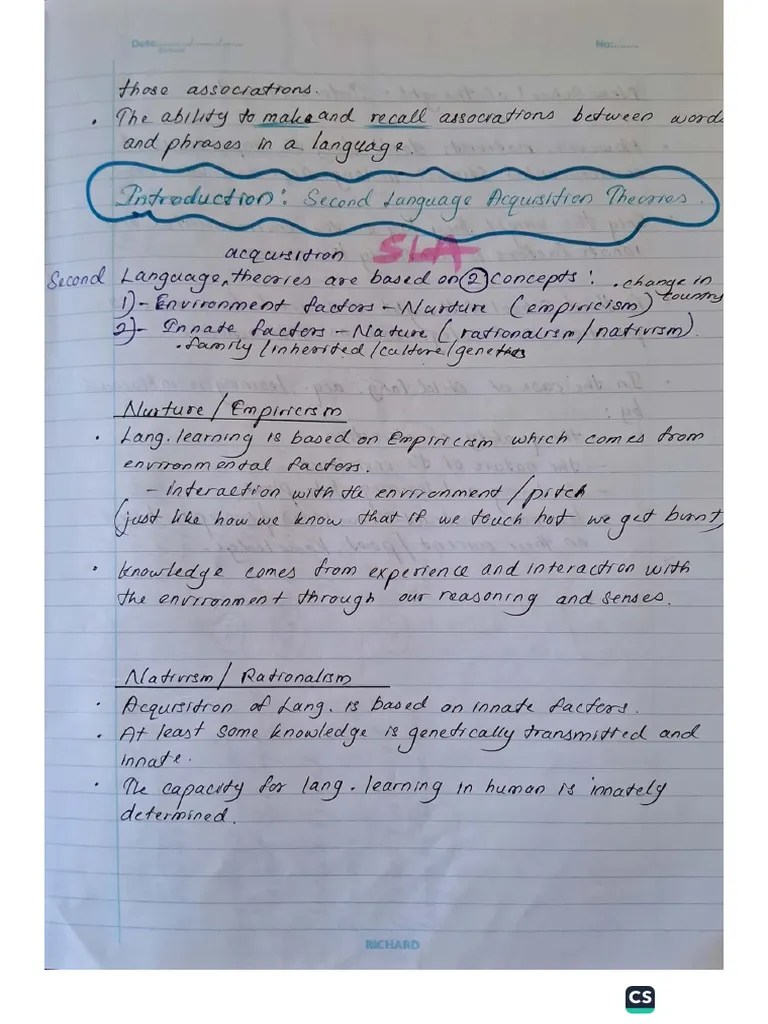 Date: No:
those associations.
• The ability to make and recall associations between words
and phrases in a language.
Introduction: Second Language Acquisition Theories.
acquisition SLA
Second Language, theories are based on 2 concepts: • change in
country
1) - Environment factors - Nurture (empiricism)
2) - Innate factors - Nature (rationalism/nativism).
• family/inherited/culture/genetics
Nurture/Empiricism
• Lang. learning is based on Empiricism which comes from
environmental factors.
- Interaction with the environment/pitch
(just like how we know that if we touch hot we get burnt)
• knowledge comes from experience and interaction with
the environment through our reasoning and senses.
Nativism/Rationalism
• Acquisition of Lang. is based on innate factors.
• At least some knowledge is genetically transmitted and
innate.
• The capacity for lang. learning in human is innately
determined.
RICHARD
CS